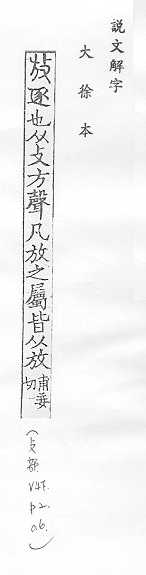 説文解字
大徐本
放逐也从攴方聲凡放之屬皆从放甫妄切
(攴部 V4下. p2. a.6.)